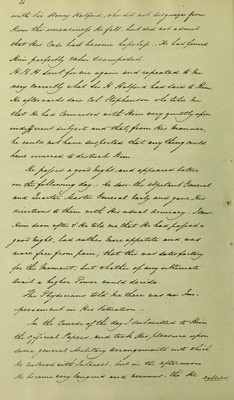 with Sir Henry Halford, who did not disguise from
Him the uneasiness He felt, but did not admit
that His Case had become hopeless. He had found
Him perfectly calm & composed.
H.R.H sent for me again and repeated to me
very correctly what Sir H Halford had said to Him.
He afterwards saw Col Stephenson who told me
that He had conversed with Him very quietly upon
indifferent subjects and that from His manner,
he could not have suspected that any thing could
have occurred to disturb Him.
He passed a good night and appeared better
on the following day. He saw the Adjutant General
and Quarter Master General early and gave His
directions to them with His usual accuracy. I saw
Him soon after & He told me that He had passed a
good night, had rather more appetite and was
more free from pain, that this was satisfactory
for the moment, but whether of any ultimate
avail a higher Power would decide.
The Physicians told me there was no Im-
provement in His situation.
In the Course of the day I submitted to Him
the official Papers and took His pleasure upon
some general Military arrangements into which
He entered with Interest, but in the afternoon
He became very languid and nervous. Tho' He
rallied